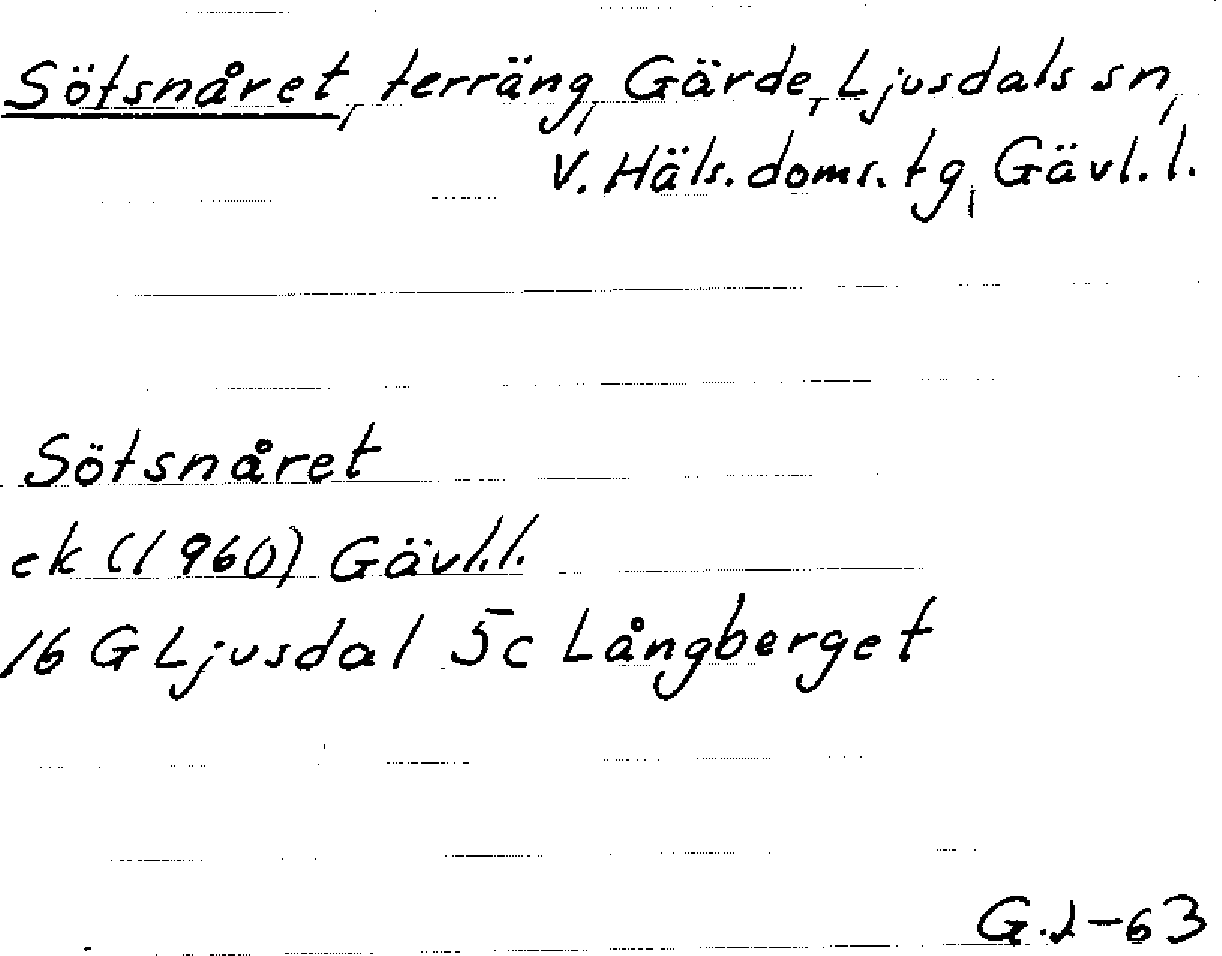 Sötsnåret, terräng, Gärde, Ljusdals sn,
V. Häls. doms. tg, Gävl. l.
Sötsnåret
ek (1960) Gävl. l.
16 G Ljusdal 5c Långberget
G. L-63